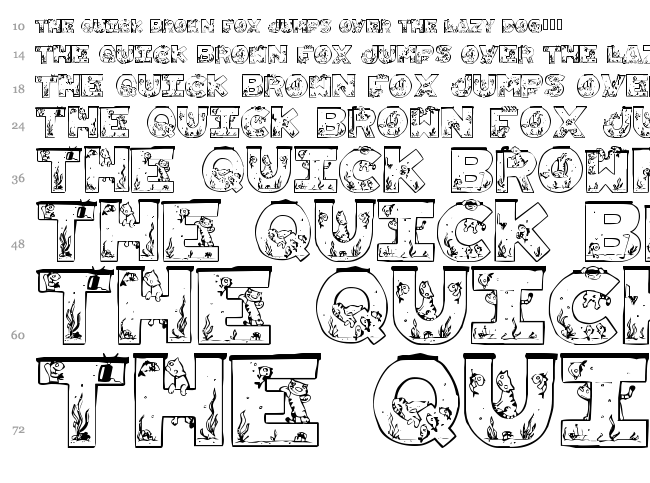 10 THE QUICK BROWN FOX JUMPS OVER THE LAZY DOG!!!
14 THE QUICK BROWN FOX JUMPS OVER THE LAZ
18 THE QUICK BROWN FOX JUMPS OVE
24 THE QUICK BROWN FOX JU
36 THE QUICK BROWN
48 THE QUICK BR
60 THE QUICK
72 THE QUI